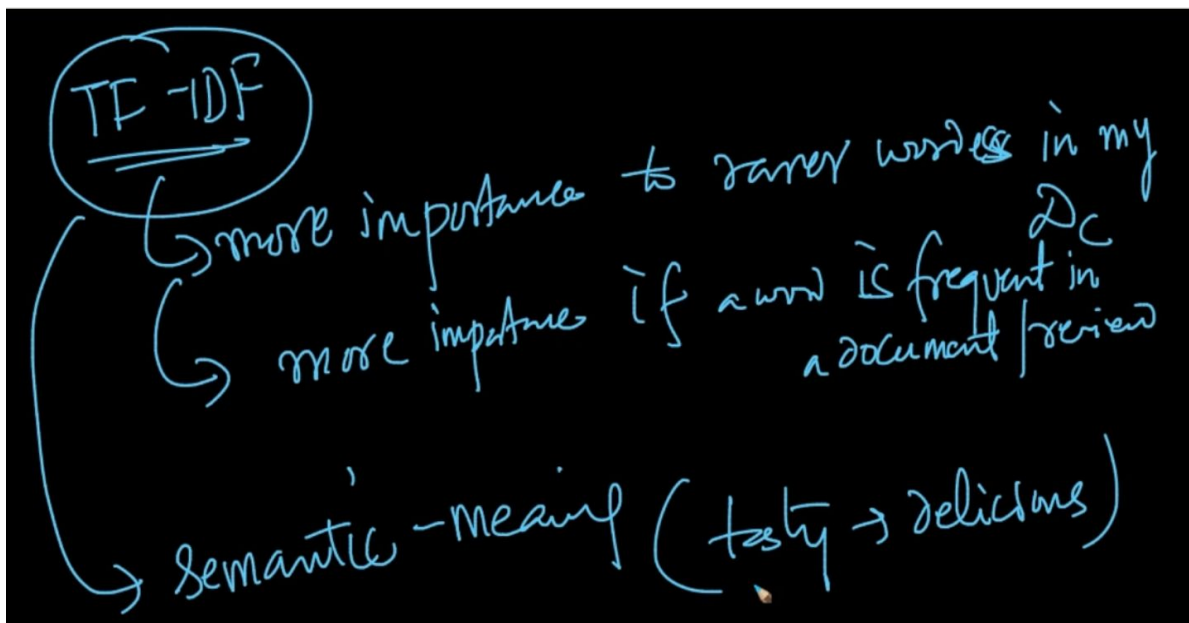 TF-IDF
more importance to rarer words in my
Dc
more importance if a word is frequent in
a document/review
semantic-meaning (tasty → delicious)